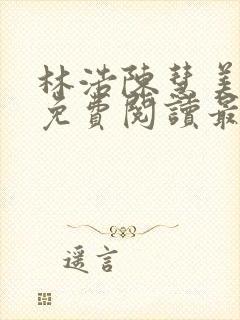 林浩陳慧美
免費閱讀最
遥言